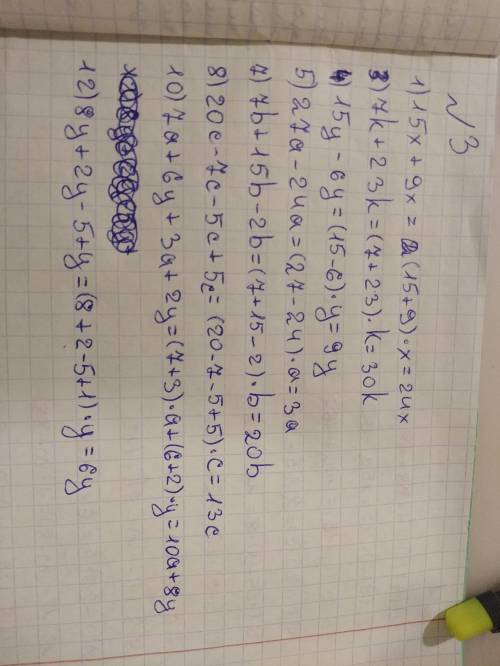 √3
1) 15x + 9x = (15+9)·x = 24x
3) 7k + 23k = (7+23)·k = 30k
4) 15y - 6y = (15-6)·y = 9y
5) 27a - 24a = (27-24)·a = 3a
7) 7b + 15b - 2b = (7+15-2)·b = 20b
8) 20c - 7c - 5c + 5c = (20-7-5+5)·c = 13c
10) 7a + 6y + 3a + 2y = (7+3)·a + (6+2)·y = 10a + 8y
12) 8y + 2y - 5 + y = (8+2-5+1)·y = 6y